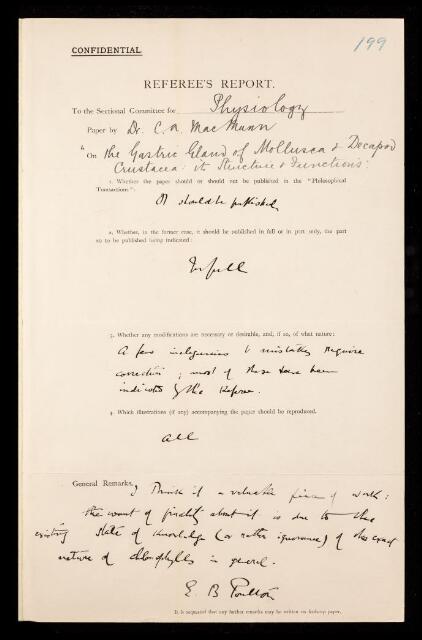 199
CONFIDENTIAL.
REFEREE'S REPORT.
To the Sectional Committee for Physiology
Paper by Dr. C. A. MacMunn
"On the Gastric Gland of Mollusca & Decapod
Crustacea: its Structure & Functions.
1. Whether the paper should or should not be published in the "Philosophical
Transactions":
It should be published
2. Whether, in the former case, it should be published in full or in part only, the part
not to be published being indicated:
In full
3. Whether any modifications are necessary or desirable, and, if so, of what nature:
A few inelegancies & mistakes require
correction; most of these have been
indicated by the Referee.
4. Which illustrations (if any) accompanying the paper should be reproduced.
all
General Remarks. I think it a valuable piece of work:
the want of finality about it is due to the
existing state of knowledge (or rather ignorance) of the exact
nature of chlorophylls in general.
E. B Poulton
It is requested that any further remarks may be written on foolscap paper.